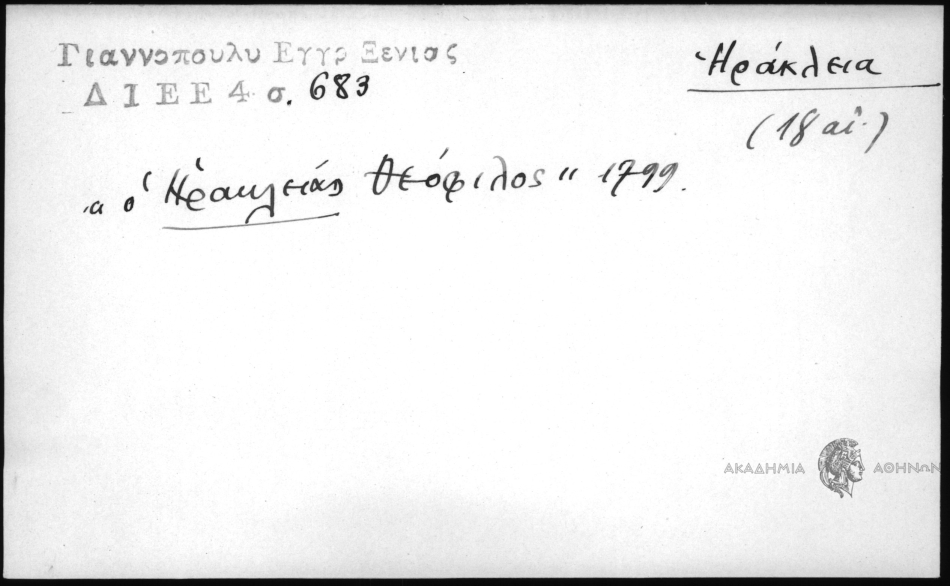 Γιαννοπουλυ Εγγρ Ξενιας
ΔΙΕΕ 4 σ. 683
Ἡράκλεια
(18 αἰ.)
"ὁ Ἡρακλείας Θεόφιλος" 1799.
ΑΚΑΔΗΜΙΑ ΑΘΗΝΩΝ